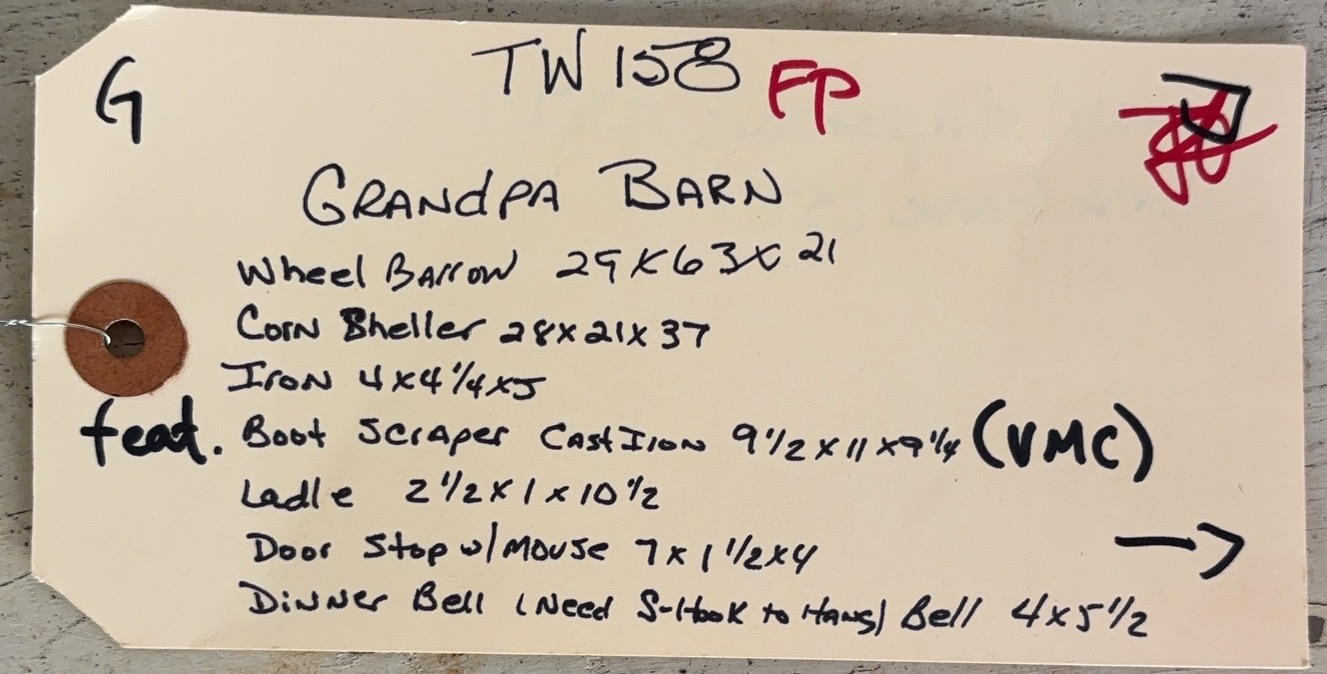 G
TW 158 FP
GRANDPA BARN
Wheel Barrow 29 x 63 x 21
Corn Sheller 28 x 21 x 37
Iron 4 x 4 1/4 x 5
feat. Boot Scraper Cast Iron 9 1/2 x 11 x 9 1/4 (VMC)
Ladle 2 1/2 x 1 x 10 1/2
Door Stop w/ Mouse 7 x 1 1/2 x 4
→
Dinner Bell (Need S-Hook to Hang) Bell 4 x 5 1/2